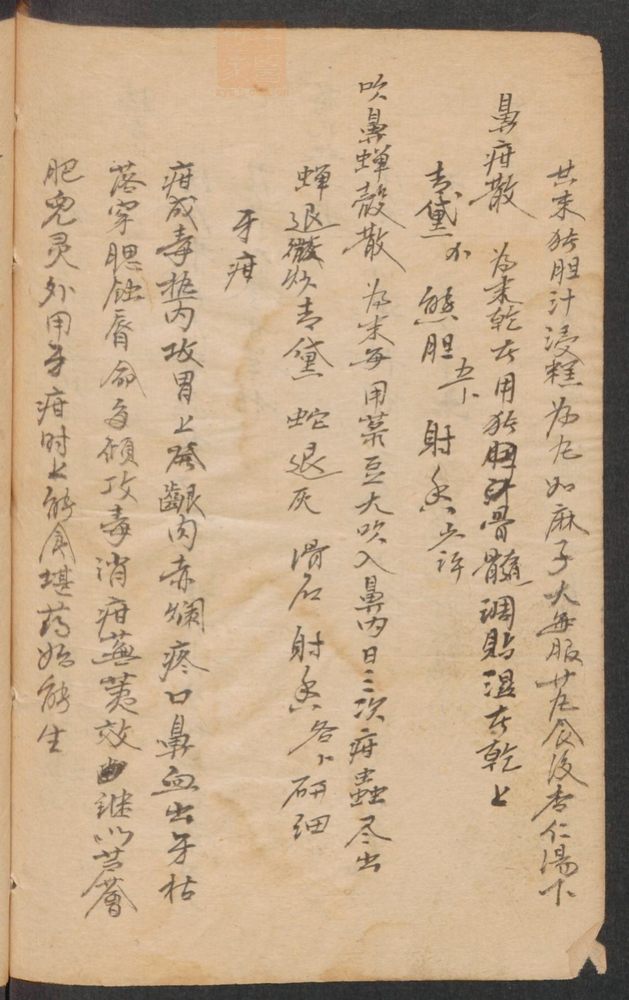 共末猪胆汁浸糕为丸如麻子大每服廿丸食後杏仁湯下
鼻疳散 为末乾者用猪骨髓调贴湿者乾上
青黛 熊胆 射香少许
吹鼻蝉殼散 为末每用菉豆大吹入鼻内日三次疳蟲尽出
蝉退微炒青黛 蛇退灰 滑石 射香各卜研细
牙疳
疳成毒热内攻胃上發齦肉赤烂疼口鼻血出牙枯
落穿腮蝕唇命多傾攻毒消疳蕪荑效継以芦薈
肥兒灵外用牙疳时上能食堪药始能生